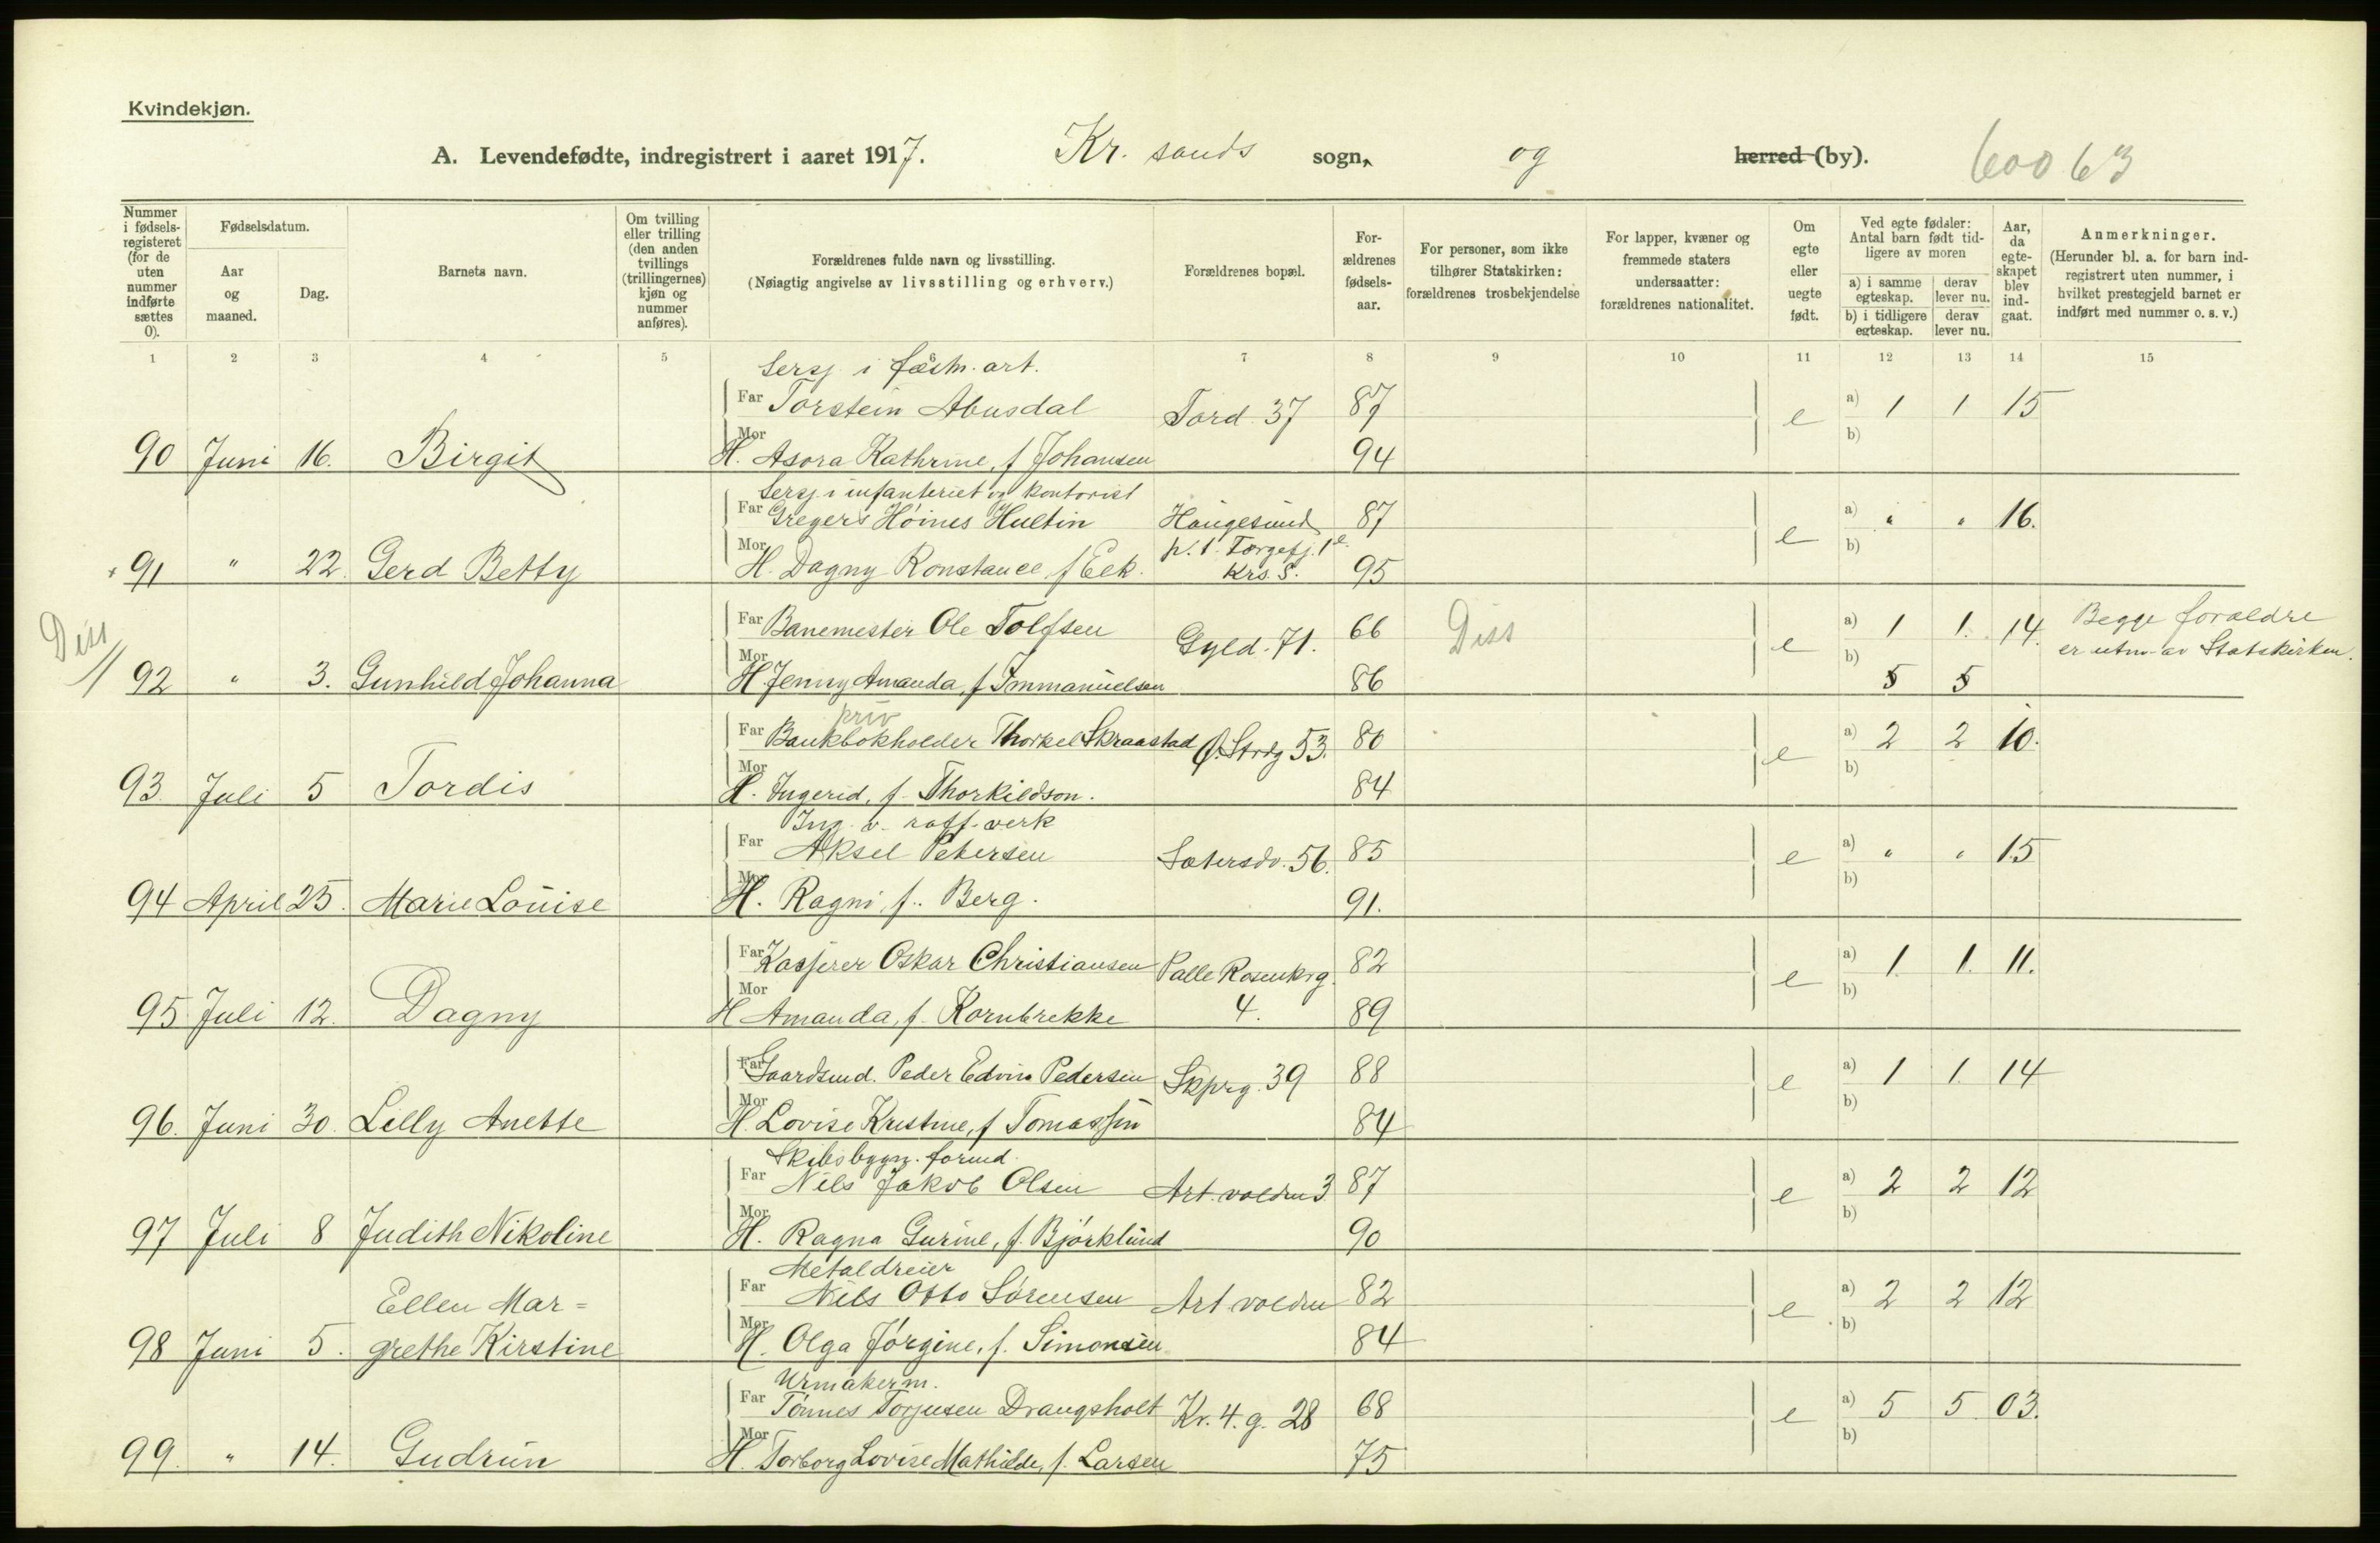 Kvindekjøn.
A. Levendefødte, indregistrert i aaret 1917. Kr. sands sogn, og herred (by). 60063
Nummer i fødsels-registeret (for de uten nummer indførte sættes 0).
Fødselsdatum.
Aar og maaned.
Dag.
Barnets navn.
Om tvilling eller trilling (den anden tvillings (trillingernes) kjøn og nummer anføres).
Forældrenes fulde navn og livsstilling.
(Nøiagtig angivelse av livsstilling og erhverv.)
Forældrenes bopæl.
For-ældrenes fødsels-aar.
For personer, som ikke tilhører Statskirken: forældrenes trosbekjendelse
For lapper, kvæner og fremmede staters undersaatter: forældrenes nationalitet.
Om egte eller uegte født.
Ved egte fødsler: Antal barn født tid-ligere av moren
a) i samme egteskap. derav lever nu.
b) i tidligere egteskap. derav lever nu.
Aar, da egte-skapet blev ind-gaat.
Anmerkninger.
(Herunder bl. a. for barn ind-registrert uten nummer, i hvilket prestegjeld barnet er indført med nummer o. s. v.)
1 2 3 4 5 7 8 9 10 11 12 13 14 15
Sersj. i fæstn. art.
Far Torstein Abusdal Tord. 37 87 e a) 1 1 15
b)
90 Juni 16. Birgit Mor H. Asora Kathrine, f Johansen 94
Sersj i infanteriet og kontorist
Far Gregers Höines Hultin Haugesund 87 e a) " " 16.
p. t. Færgefj. 1 e. b)
91 " 22. Gerd Betty Mor H. Dagny Konstance, f Eek. Krs. S. 95
Diss
Far Banemester Ole Tolfsen Gyld. 71. 66 Diss e a) 1 1. 14. Begge forældre
er utm. av Statskirken.
92 " 3. Gunhild Johanna Mor H. Jenny Amanda, f Immanuelsen 86 b) 5 5
priv
Far Bankbokholder Thorkel Skraastad Ø. Strdg 53. 80 e a) 2 2 10.
b)
93. Juli 5 Tordis Mor H. Ingerid, f. Thorkildson. 84
Ing. v. raff. verk
Far Aksel Petersen Sætersdv. 56. 85 e a) " " 15
b)
94 April 25. Marie Louise Mor H. Ragni, f. Berg. 91.
Far Kasserer Oskar Christiansen Palle Rosenkrg. 82 e a) 1. 1. 11.
b)
95 Juli 12. Dagny Mor H Amanda, f. Kornbrekke 4. 89
Far Gaardsmd. Peder Edvin Pedersen Skprg. 39 88 e a) 1 1. 14
b)
96. Juni 30. Lilly Anette Mor H. Lovise Kristine, f Tomassen 84
Skibsbygn. formd.
Far Nils Jakob Olsen Art. volden 3 87 e a) 2 2 12
b)
97 Juli 8 Judith Nikoline Mor H. Ragna Gurine, f. Björklund 90
Metaldreier
Far Nils Otto Sörensen Art. volden 82 e a) 2 2 12
Ellen Mar= b)
98 Juni 5. grethe Kirstine Mor H. Olga Jörgine, f. Simonsen 84
Urmakerm.
Far Tönnes Torjusen Drangsholt Kr. 4. g. 28 68 e a) 5 5. 03.
b)
99. " 14. Gudrun Mor H. Torborg Lovise Mathilde, f. Larsen 75